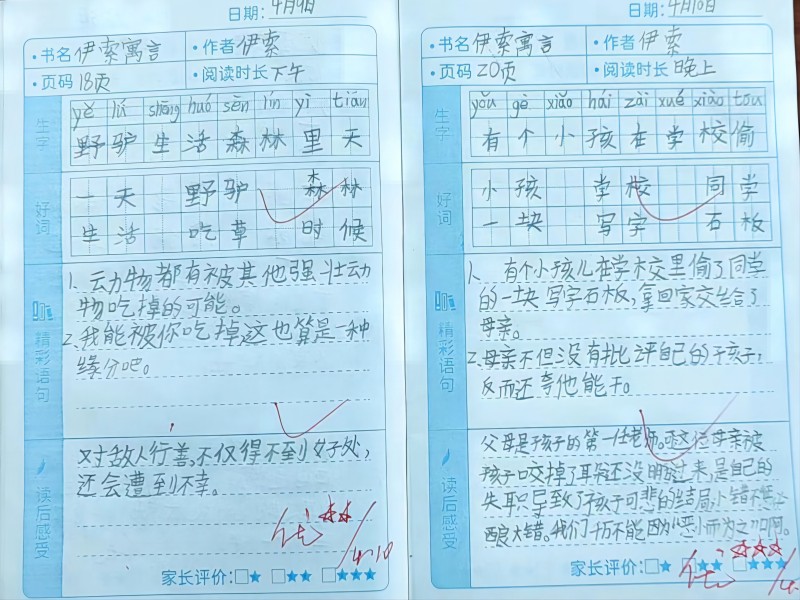 日期: 4月9日
·书名 伊索寓言 ·作者 伊索
·页码 18页 ·阅读时长 下午
生字
yě lú shēng huó sēn lín yì tiān
野驴生活森林里天
好词
一天 野驴 森林
生活 吃草 时候
精彩语句
1. 动物都有被其他强壮动
物吃掉的可能。
2. 我能被你吃掉这也算是一种
缘分吧。
读后感受
对敌人行善,不仅得不到好处,
还会遭到不幸。
优 4.10
家长评价: □★ □★★ □★★★
日期: 4月10日
·书名 伊索寓言 ·作者 伊索
·页码 20页 ·阅读时长 晚上
生字
yǒu gè xiǎo hái zài xué xiào tou
有个小孩在学校偷
好词
小孩 学校 同学
一块 写字 石板
精彩语句
1. 有个小孩儿在学校里偷了同学
的一块写字石板,拿回家交给了
母亲。
2. 母亲不但没有批评自己的孩子,
反而还夸他能干。
读后感受
父母是孩子的第一任老师。这位母亲被
孩子咬掉了耳朵还没明过来,是自己的
失职导致了孩子可悲的结局小错不惩必
酿大错。我们千万不能因为“恶小而为之”啊。
优
家长评价: □★ □★★ □★★★